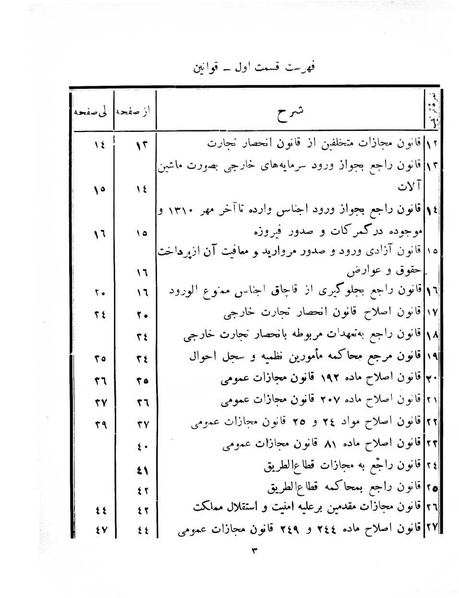 فهرست قسمت اول – قوانین
نمره ترتیب شرح از صفحه الی صفحه
۱۲ قانون مجازات متخلفین از قانون انحصار تجارت ۱۳ ۱٤
۱۳ قانون راجع بجواز ورود سرمایه‌های خارجی بصورت ماشین
آلات ۱٤ ۱۵
۱٤ قانون راجع بجواز ورود اجناس وارده تا آخر مهر ۱۳۱۰ و
موجوده در گمرکات و صدور فیروزه ۱۵ ۱٦
۱۵ قانون آزادی ورود و صدور مروارید و معافیت آن از پرداخت
حقوق و عوارض ۱٦
۱٦ قانون راجع بجلوگیری از قاچاق اجناس ممنوع الورود ۱٦ ۲۰
۱۷ قانون اصلاح قانون انحصار تجارت خارجی ۲۰ ۲٤
۱۸ قانون راجع به‌تعهدات مربوطه بانحصار تجارت خارجی ۳٤
۱۹ قانون مرجع محاکمه مأمورین نظمیه و سجل احوال ۳٤ ۳۵
۲۰ قانون اصلاح ماده ۱۹۲ قانون مجازات عمومی ۳۵ ۳٦
۲۱ قانون اصلاح ماده ۲۰۷ قانون مجازات عمومی ۳٦ ۳۷
۲۲ قانون اصلاح مواد ۲٤ و ۲۵ قانون مجازات عمومی ۳۷ ۳۹
۲۳ قانون اصلاح ماده ۸۱ قانون مجازات عمومی ٤۰
۲٤ قانون راجع به مجازات قطاع‌الطریق ٤۱
۲۵ قانون راجع بمحاکمه قطاع‌الطریق ٤۲
۲٦ قانون مجازات مقدمین برعلیه امنیت و استقلال مملکت ٤۲ ٤٤
۲۷ قانون اصلاح ماده ۲٤٤ و ۲٤۹ قانون مجازات عمومی ٤٤ ٤۷
۳